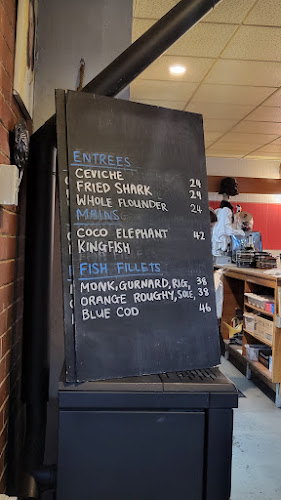 ENTREES
CEVICHE 24
FRIED SHARK 24
WHOLE FLOUNDER 24
MAINS
COCO ELEPHANT 42
KINGFISH
FISH FILLETS
MONK, GURNARD, RIG, 38
ORANGE ROUGHY, SOLE, 38
BLUE COD 46